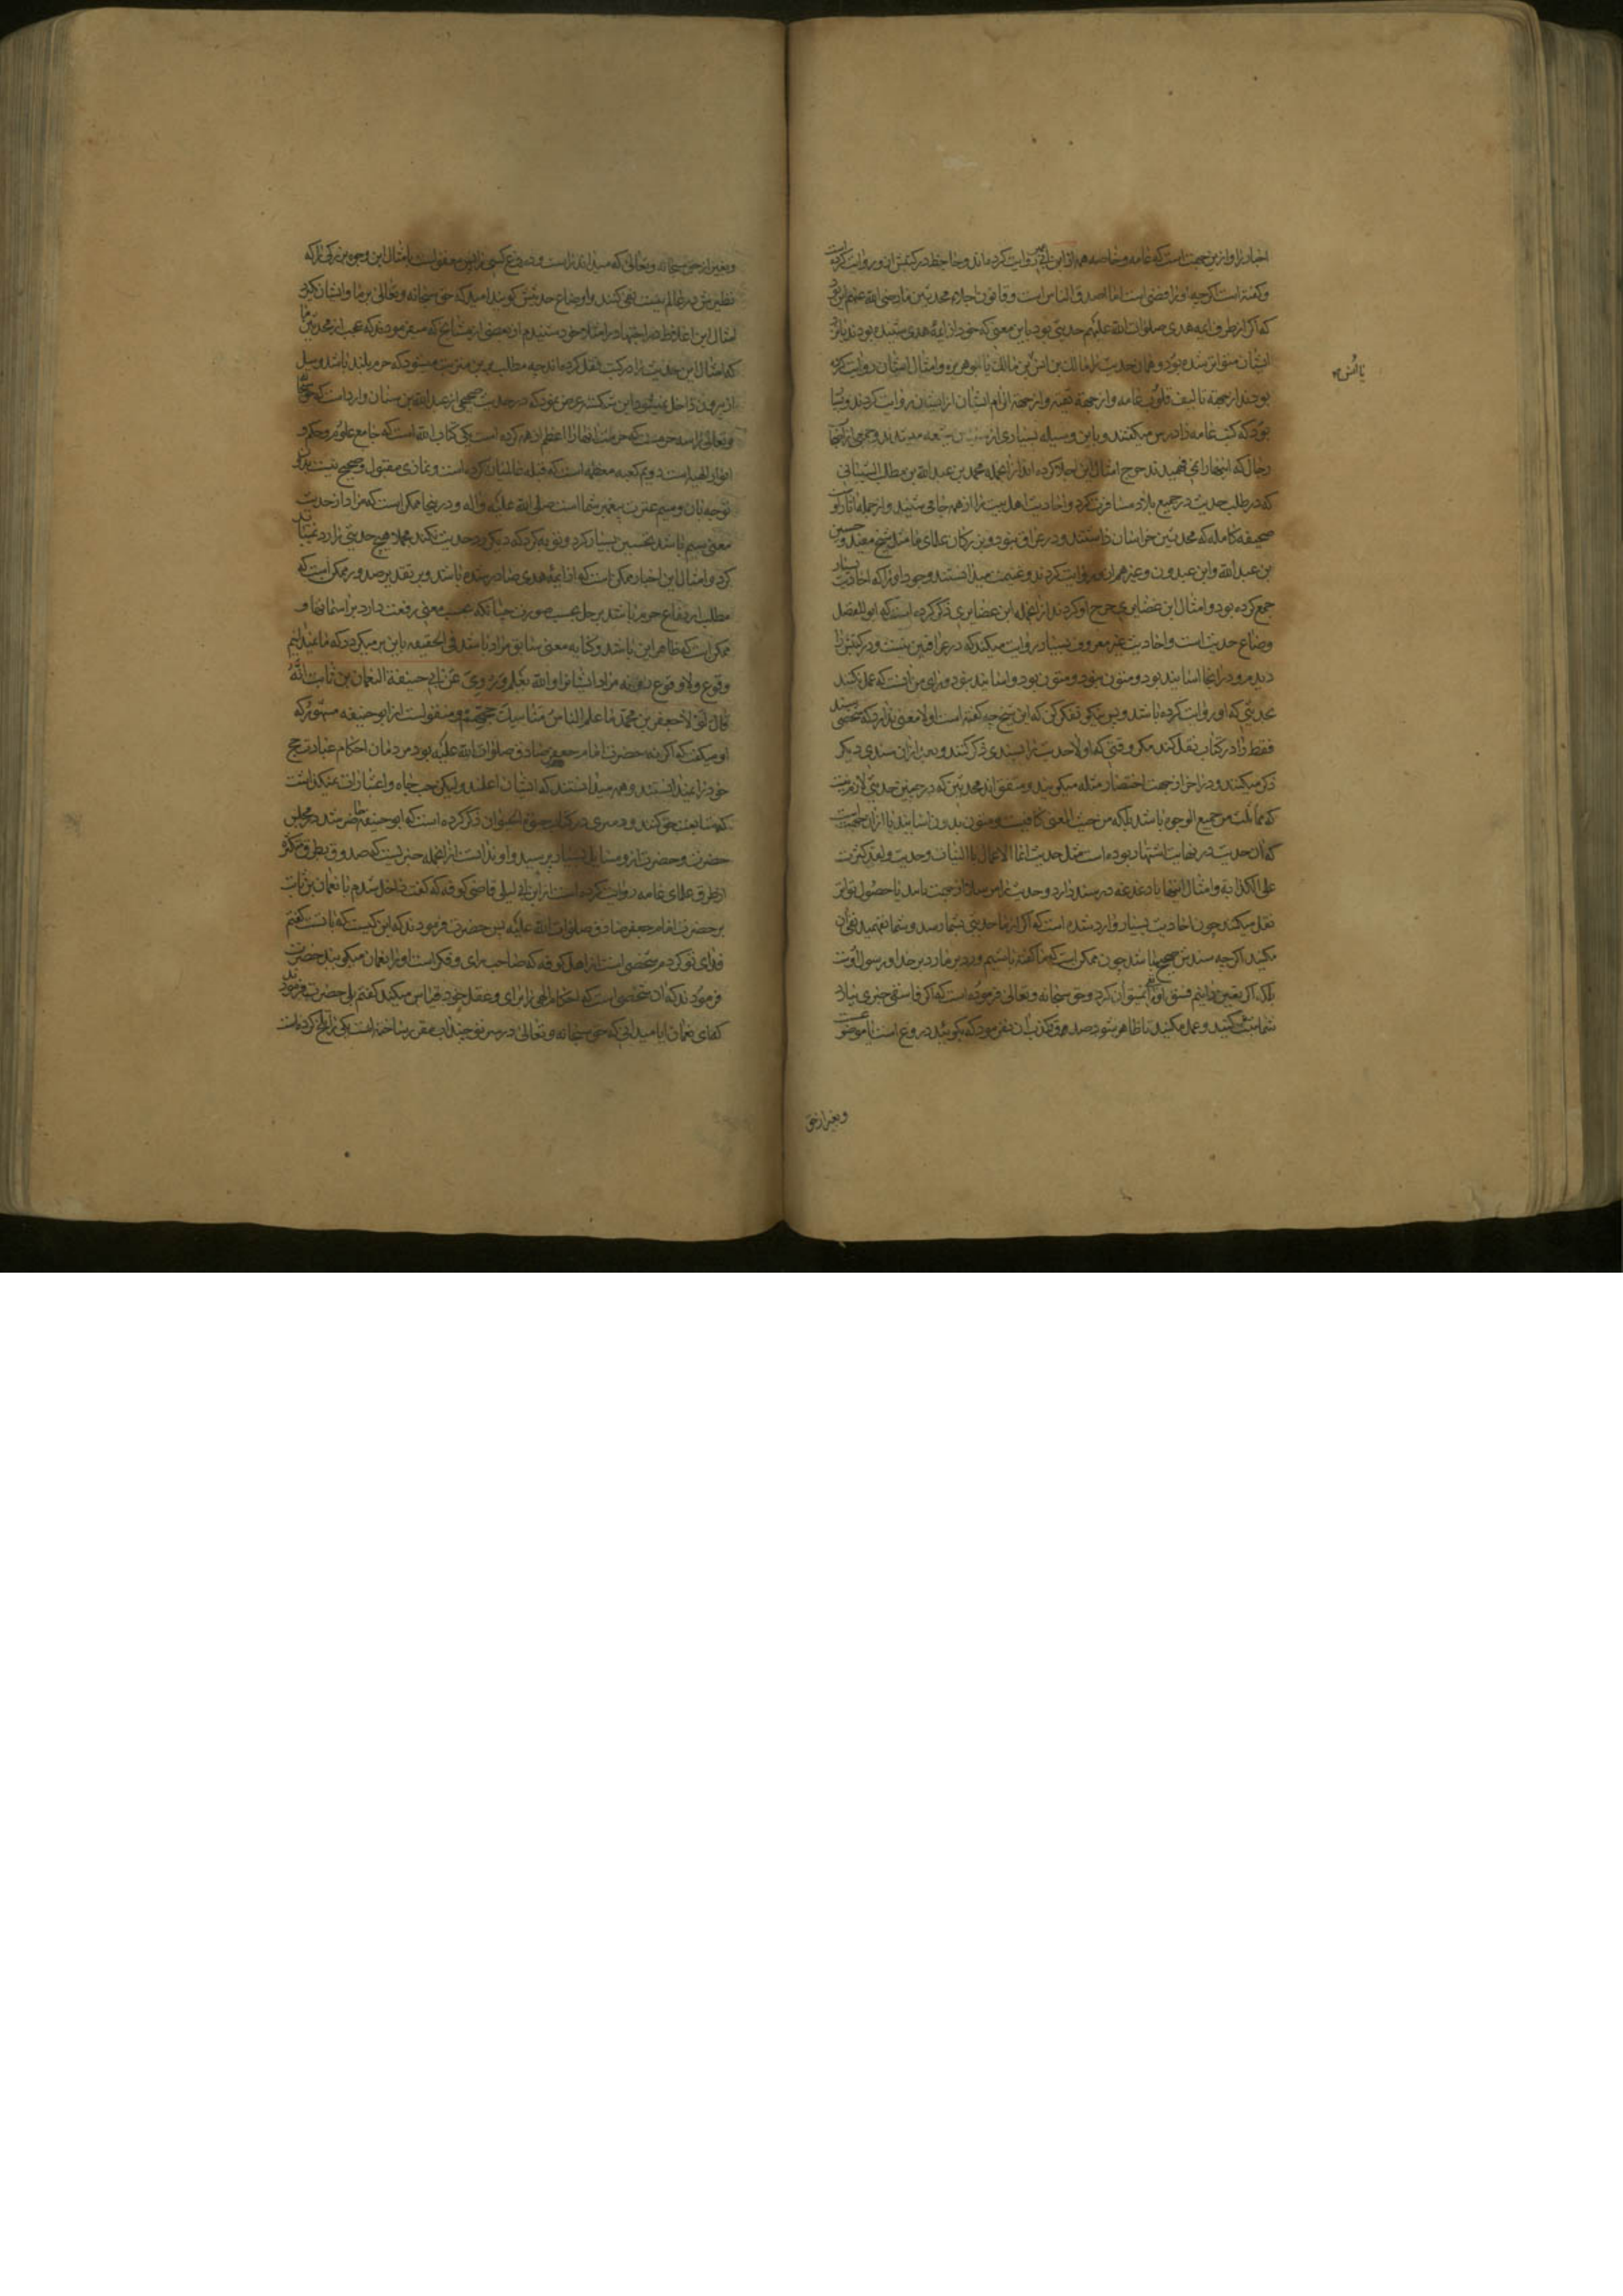 اخبار را و ازین جهتست که عامه و خاصه همه از ابن ابی عمیر روایت کرده‌اند و جاحظ در کتبش ازو روایت کرده
و گفته است اگرچه او رافضی است اما اصدق الناس است و قانون اجلاء محدثین ما رضی الله عنهم این بود
که اگر از طرف ایمه هدی صلوات الله علیهم حدیثی بود باین معنی که خود از ایمهٔ هدی شنیده بودند یا از
ایشان متواتر شده بود و همان حدیث را مالک بن انس بن مالک یا ابو هریره و امثال ایشان روایت کرده
یا انس
بودند از جهة تالیف قلوب عامه و از جهة تقیه و از جهة الزام ایشان از ایشان روایت کردند و بسا
بود که کتب عامه را درس میگفتند و باین وسیله بسیاری از شیعه میشدند و جمعی از اصحاب
رجال که اینها را نمی فهمیدند جرح امثال این اجلا کرده اند از انجمله محمد بن عبد الله بن مطلب الشیبانی
که در طلب حدیث در جمیع بلاد مسافرت کرد و احادیث اهل بیت را از همه جائی شنید و از جمله آثار او
صحیفه کامله که محدثین خراسان داشتند و در عراق نبود و بزرکان علمای ما مثل شیخ مفید و حسین
بن عبد الله و ابن عبدون و غیر هم ازو روایت کردند و غنیمت میدانستند وجود او را که احادیث بسیار
جمع کرده بود و امثال ابن غضایری جرح او کردند از انجمله ابن غضایری ذکر کرده است که ابو المفضل
وضاع حدیث است و احادیث غیر معروف بسیار روایت میکند که در عراقین نیست و در کتبش را
دیدم و در انجا اسانید بود و متون نبود و متون بود و اسانید نبود و رای من انست که عمل نکنند
بحدیثی که او روایت کرده باشد و پس نیکو تفکر کن که این شیخ چه گفته است اولا معنی ندارد که شخصی سند
فقط را در کتاب نقل کند مکر وقتی که اولا حدیث را بسندی ذکر کنند و بعد از ان سندی دیکر
ذکر میکنند و در اخر از جهت اختصار مثله میکویند و متفق اند محدثین که در چنین حدیثی لازم نیست
که مماثلت من جمیع الوجوه باشد بلکه من حیث المعنی کافیست و متون بدون اسانید یا از ان جهتست
که ان حدیث در نهایت اشتهار بوده است مثل حدیث انما الاعمال بالنیات و حدیث و لقد کثرت
علی الکذابة و امثال اینها یا دغدغه در سند دارد و حدیث را مرسلا از جهت تایید یا حصول تواتر
نقل میکند چون احادیث بسیار وارد شده است که اگر از ما حدیثی بشما رسد و شما نفهمید نفی ان
مکنید اکرچه سندش صحیح نباشد چون ممکن است که ما گفته باشیم و رد بر ما رد بر خدا و رسول اوست
بلکه اکر یقین دانیم فسق او را نفی نمیتوان کرد و حق سبحانه و تعالی فرموده است که اگر فاسقی خبری بیاورد
شما تبین کنید و عمل مکنید تا ظاهر شود صدق و کذب ان نفرمود که بکویید دروغ است یا موضوعست
و بغیر از حق
و بغیر از حق سبحانه و تعالی که میداند راست و دروغ کسی را پس معقولست با امثال این وجوه بزرکی را که
نظیرش در عالم نیست نفی کنند و او را وضاع حدیثش کویند امید که حق سبحانه و تعالی بر ما و ایشان نکیرد
امثال این اغلاط در اجتهاد را مثلا خود شنیدم از بعضی از مشایخ که میفرمودند که عجب از محدثین ما
که امثال این حدیث را در کتب نقل کرده‌اند چه مطلب برین مترتب میشود که حرم بلند باشد و سیل
از بیرون داخل نمیشود این شکسته عرض نمود که در حدیث صحیح از عبد الله بن سنان وارد است که حق سبحانه
و تعالی را سه حرمت که حرمت اینها را اعظم از همه کرده است یکی کتاب الله است که جامع علوم و حکم و
انوار الهیه است دویم کعبه معظمه است که قبله عالمیان کرده است و نمازی مقبول و صحیح نیست بدون
توجه بان و سیم عترت پیغمبر شما است صلی الله علیه و اله و در اینجا ممکن است که مراد از حدیث
معنی سیم باشد تحسین بسیار کرد و توبه کرد که دیکر رد حدیث نکند مجملا هیچ حدیثی را رد نمیباید
کرد و امثال این اخبار ممکن است که از ایمهٔ هدی صادر شده باشد و بر تقدیر صدور ممکن است که
مطلب ارتفاع حرم باشد بر حل بحسب صورت چنانکه بحسب معنی رفعت دارد بر اسمانها و
ممکن است که ظاهر این باشد و کنایه به معنی سابق مراد باشد فی الحقیقه باین بر میکردد که ما نمیدانیم
وقوع و لا وقوع نسبت مراد ایشانرا و الله یعلم و روی عن ابی حنیفة النعمان بن ثابت انّه
قال لولا جعفر بن محمد ما علم الناس مناسک حجّهم و منقولست از ابو حنیفه مشهور که
او میکفت که اگر نه حضرت امام جعفر صادق صلوات الله علیه بود مردمان احکام عبادت حج
خود را نمیدانستند و همه میدانستند که ایشان اعلمند و لیکن حب جاه و اعتبارات نمیکذاشت
که متابعت حق کنند و دمیری در کتاب حیوة الحیوان ذکر کرده است که ابو حنیفه حاضر شد در مجلس
حضرت و حضرت ازو مسایل بسیار پرسید و او ندانست از انجمله خبریست که صدوق بطرق متکثره
از طرق علمای عامه روایت کرده است از ابن ابی لیلی قاضی کوفه که گفت داخل شدم با نعمان بن ثابت
بر حضرت امام جعفر صادق صلوات الله علیه پس حضرت فرمودند که این کیست که با تست گفتم
فدای تو کردم شخصی است از اهل کوفه که صاحب رای و فکر است او را نعمان میکویند حضرت
فرمودند که ان شخصی است که احکام الهی را برای و عقل خود قیاس میکند گفتم بلی حضرت فرمودند
که ای نعمان ایا میدانی که حق سبحانه و تعالی در سر تو چند اب مقرر ساخته است یکی را تلخ کرده است